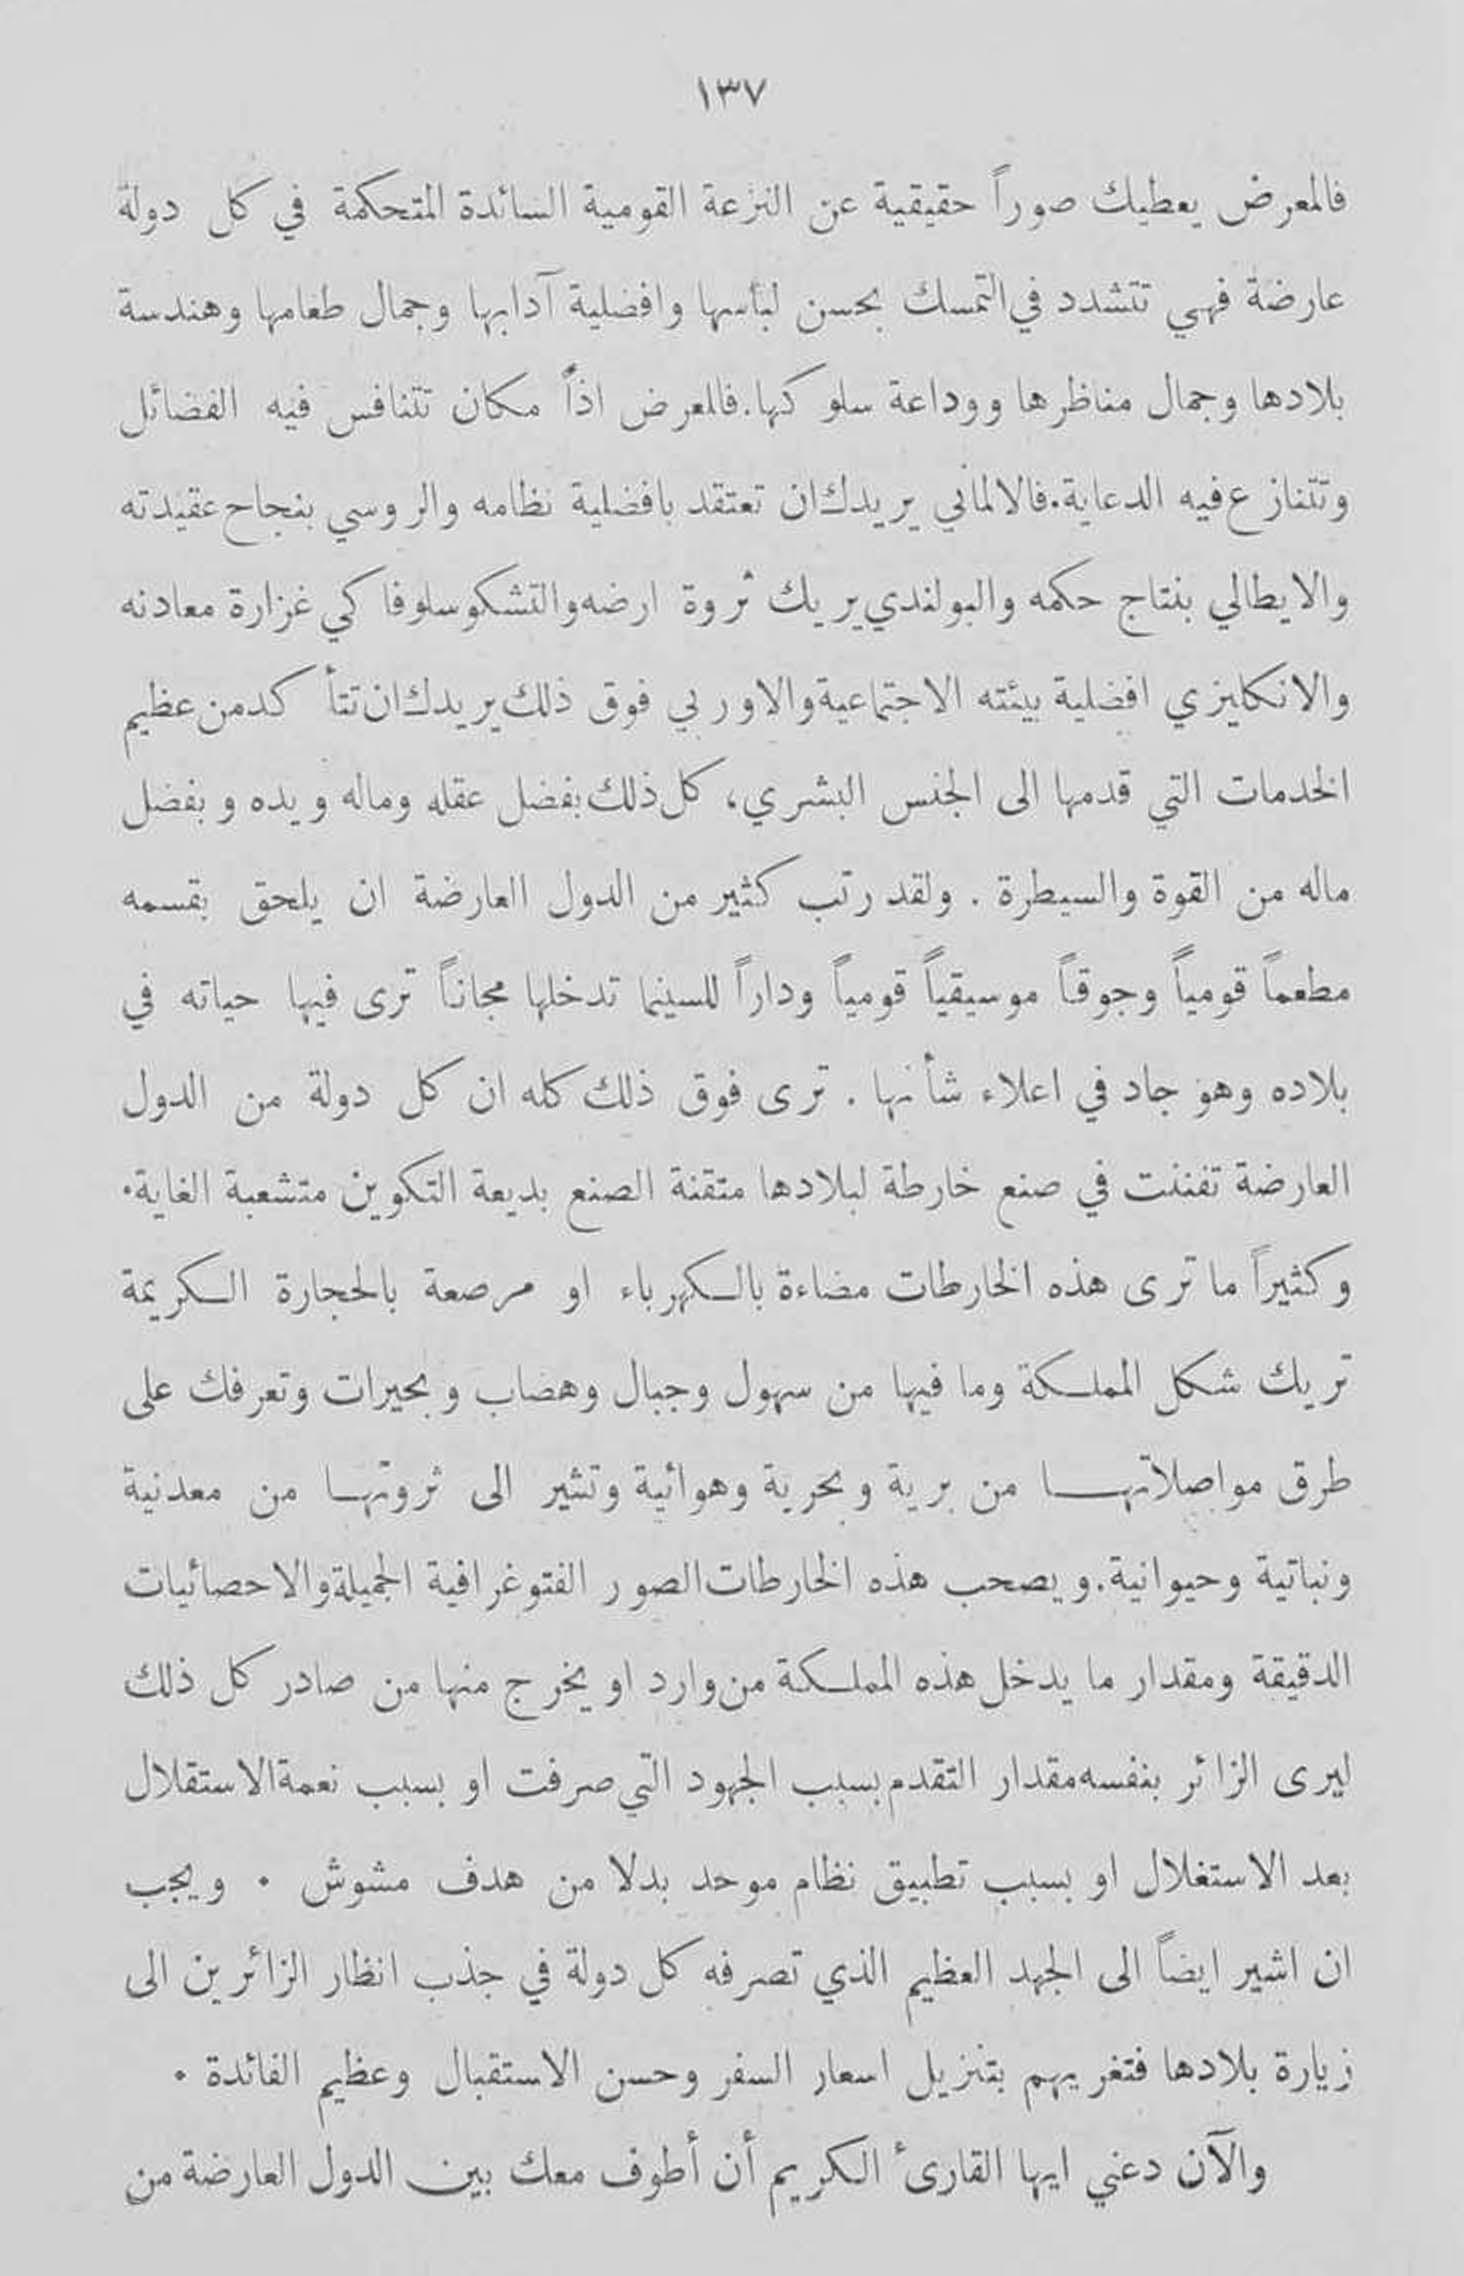 ١٣٧
فالمعرض يعطيك صوراً حقيقية عن النزعة القومية السائدة المتحكمة في كل دولة
عارضة فهي تتشدد في التمسك بحسن لباسها وافضلية آدابها وجمال طعامها وهندسة
بلادها وجمال مناظرها ووداعة سلوكها. فالمعرض اذاً مكان تتنافس فيه الفضائل
وتتنازع فيه الدعاية. فالالماني يريدك ان تعتقد بافضلية نظامه والروسي بنجاح عقيدته
والايطالي بنتاج حكمه والبولندي يريك ثروة ارضه والتشكوسلوفاكي غزارة معادنه
والانكليزي افضلية بيئته الاجتماعية والاوربي فوق ذلك يريدك ان تتأكد من عظيم
الخدمات التي قدمها الى الجنس البشري، كل ذلك بفضل عقله وماله ويده وبفضل
ماله من القوة والسيطرة . ولقد رتب كثير من الدول العارضة ان يلحق بقسمه
مطعماً قومياً وجوقاً موسيقياً قومياً وداراً للسينما تدخلها مجاناً ترى فيها حياته في
بلاده وهو جاد في اعلاء شأنها . ترى فوق ذلك كله ان كل دولة من الدول
العارضة تفننت في صنع خارطة لبلادها متقنة الصنع بديعة التكوين متشعبة الغاية.
وكثيراً ما ترى هذه الخارطات مضاءة بالكهرباء او مرصعة بالحجارة الكريمة
تريك شكل المملكة وما فيها من سهول وجبال وهضاب وبحيرات وتعرفك على
طرق مواصلاتها من برية وبحرية وهوائية وتشير الى ثروتها من معدنية
ونباتية وحيوانية. ويصحب هذه الخارطات الصور الفتوغرافية الجميلة والاحصائيات
الدقيقة ومقدار ما يدخل هذه المملكة من وارد او يخرج منها من صادر كل ذلك
ليرى الزائر بنفسه مقدار التقدم بسبب الجهود التي صرفت او بسبب نعمة الاستقلال
بعد الاستغلال او بسبب تطبيق نظام موحد بدلا من هدف مشوش . ويجب
ان اشير ايضاً الى الجهد العظيم الذي تصرفه كل دولة في جذب انظار الزائرين الى
زيارة بلادها فتغريهم بتنزيل اسعار السفر وحسن الاستقبال وعظيم الفائدة .
والآن دعني ايها القارئ الكريم أن أطوف معك بين الدول العارضة من